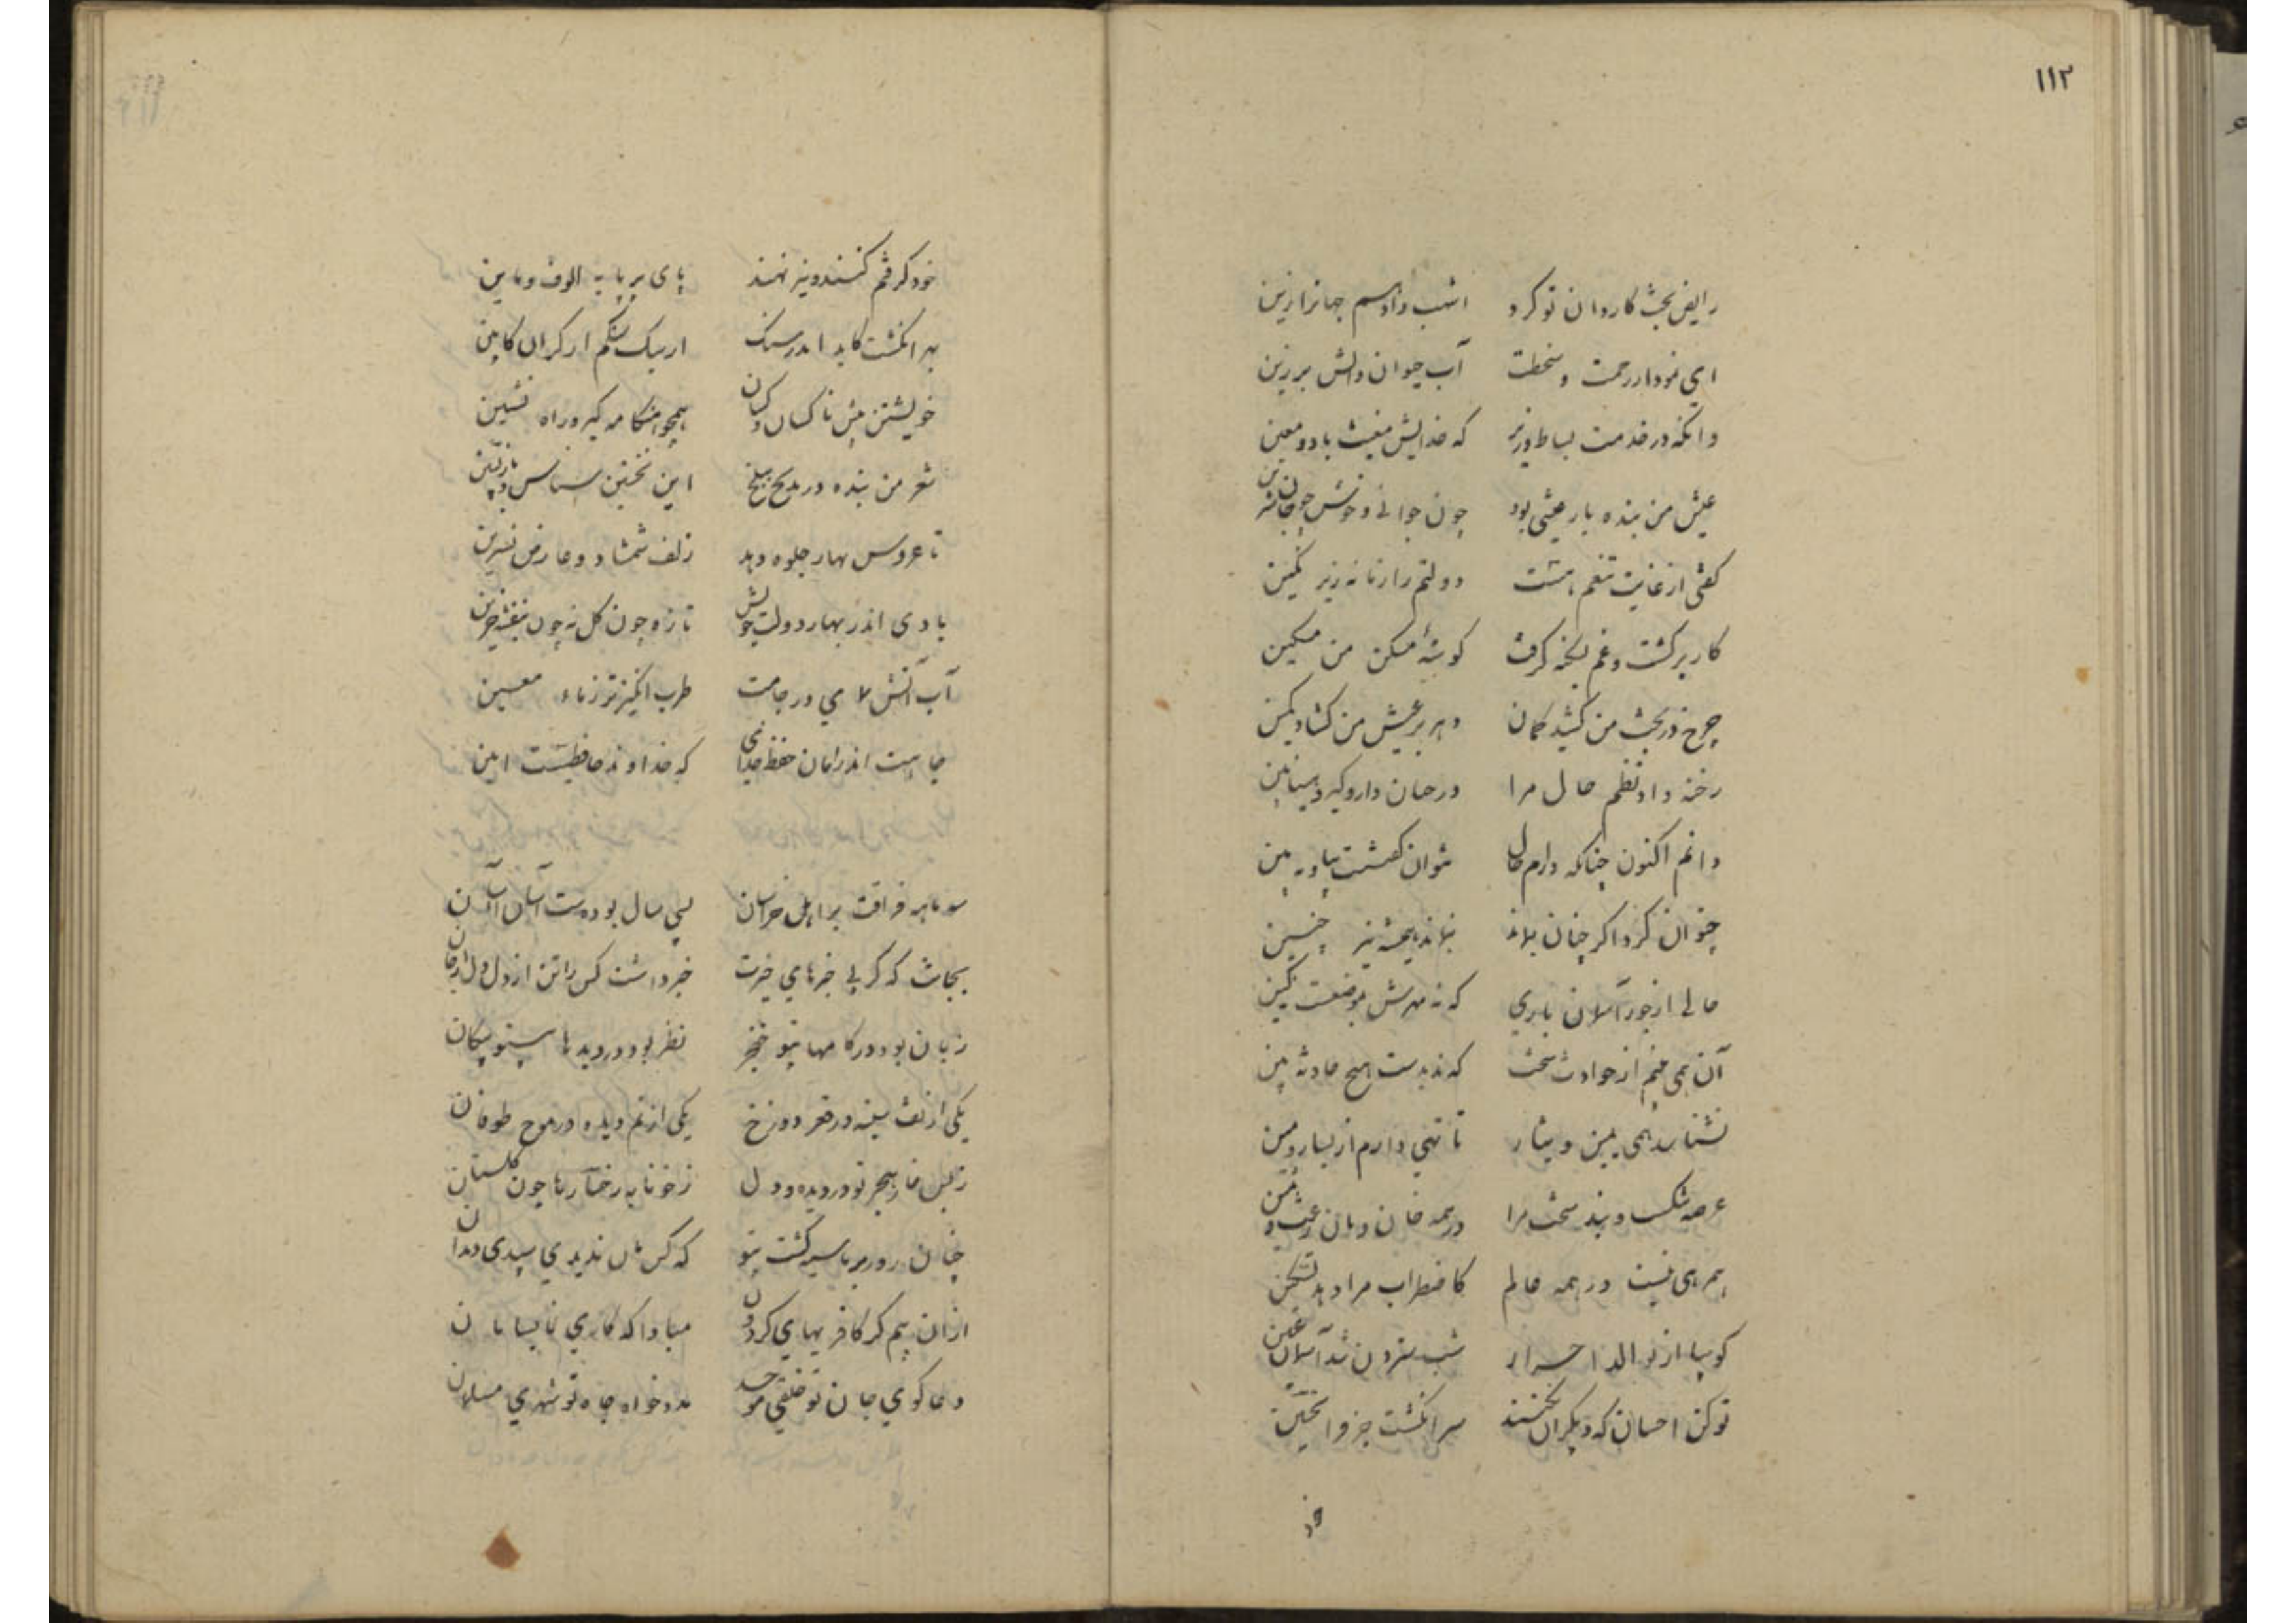 ۱۱۲
رایض بخت کاردان تو کرد اشهب وادهم جهانرا زین
ای نمودار رحمت وسخطت آب حیوان واتش برزین
وانکه در خدمت بساط وزیر که خدایش مغیث باد ومعین
عیش من بنده بار عیشی بود چون جوانی وخوش چو جان شیرین
کفتی از غایت تنعم هست دولتم را زمانه زیر نکین
کار برکشت وغم بکرفت کوشهٔ مسکن من مسکین
چرخ در بخت من کشید کمان دهر بر عیش من کشاد کمین
رخنه داد نظم حال مرا درچنان دار وکیر
دانم اکنون چنانکه دارم حال توان کفت بیا وببین
چتوان کرد اکر چنان بنماند بنماند همیشه نیز چنین
حالی از جور آسمان باری که نه مهرش بموضعست نه کین
آن همی بینم از حوادث سخت که ندیدست هیچ حادثه بین
نشناسد همی یمین ویسار تا تهی دارم از یسار ویمین
عرصه تنکست وبند سخت مرا در همه خان ومان زغث وسمین
همرهی نیست در همه عالم کاضطراب مرا دهد تسکین
کوییا از نوالد احرار شب سترون شد آسمان عنین
تو کن احسان که دیکران نکنند سر انکشت جز وا تحسین
خود
خود کرفتم کنند ونیز نهند پای بر پایه الوف ومایین
بهر انکشت کاید اندر سنک ار سبک سنکم ار کران کابین
خویشتن پیش ناکسان وکسان همچو هنکامه کیر وراه نشین
شعر من بنده در مدیح بلیغ این نخستین شناس وبازپسین
تا عروس بهار جلوه دهد زلف شمشاد وعارض نسرین
بادی اندر بهار دولت خویش تازه چون کل نه چون بنفشه حزین
آب آتش لای در جامت طرب انکیزتر زماء معین
جاهت اندر امان حفظ خدای که خداوند حافظیست امین
سه ماهه فراقت بر اهل خراسان بسی سال بودست آسان آسان
بجانت که کر بی خبرهای خیرت خبر داشت کس راتن از دل ودل از جان
زبان بود در کامها بیتو خنجر نظر بود در دیدها بیتو پیکان
یکی از تف سینه در قعر دوزخ یکی از نم دیده در موج طوفان
زبس خار هجر تو در دیده ودل زخونابه رخسارها چون کلستان
چنان روز بر ما سیه کشت بیتو که کس مان ندیدی سپیدی دندان
ازان بیم کز کافریهای کردون مبادا که کاری نیاید بسامان
دعا کوی جان تو خلقی موحد مدد خواه جاه تو شهری مسلمان